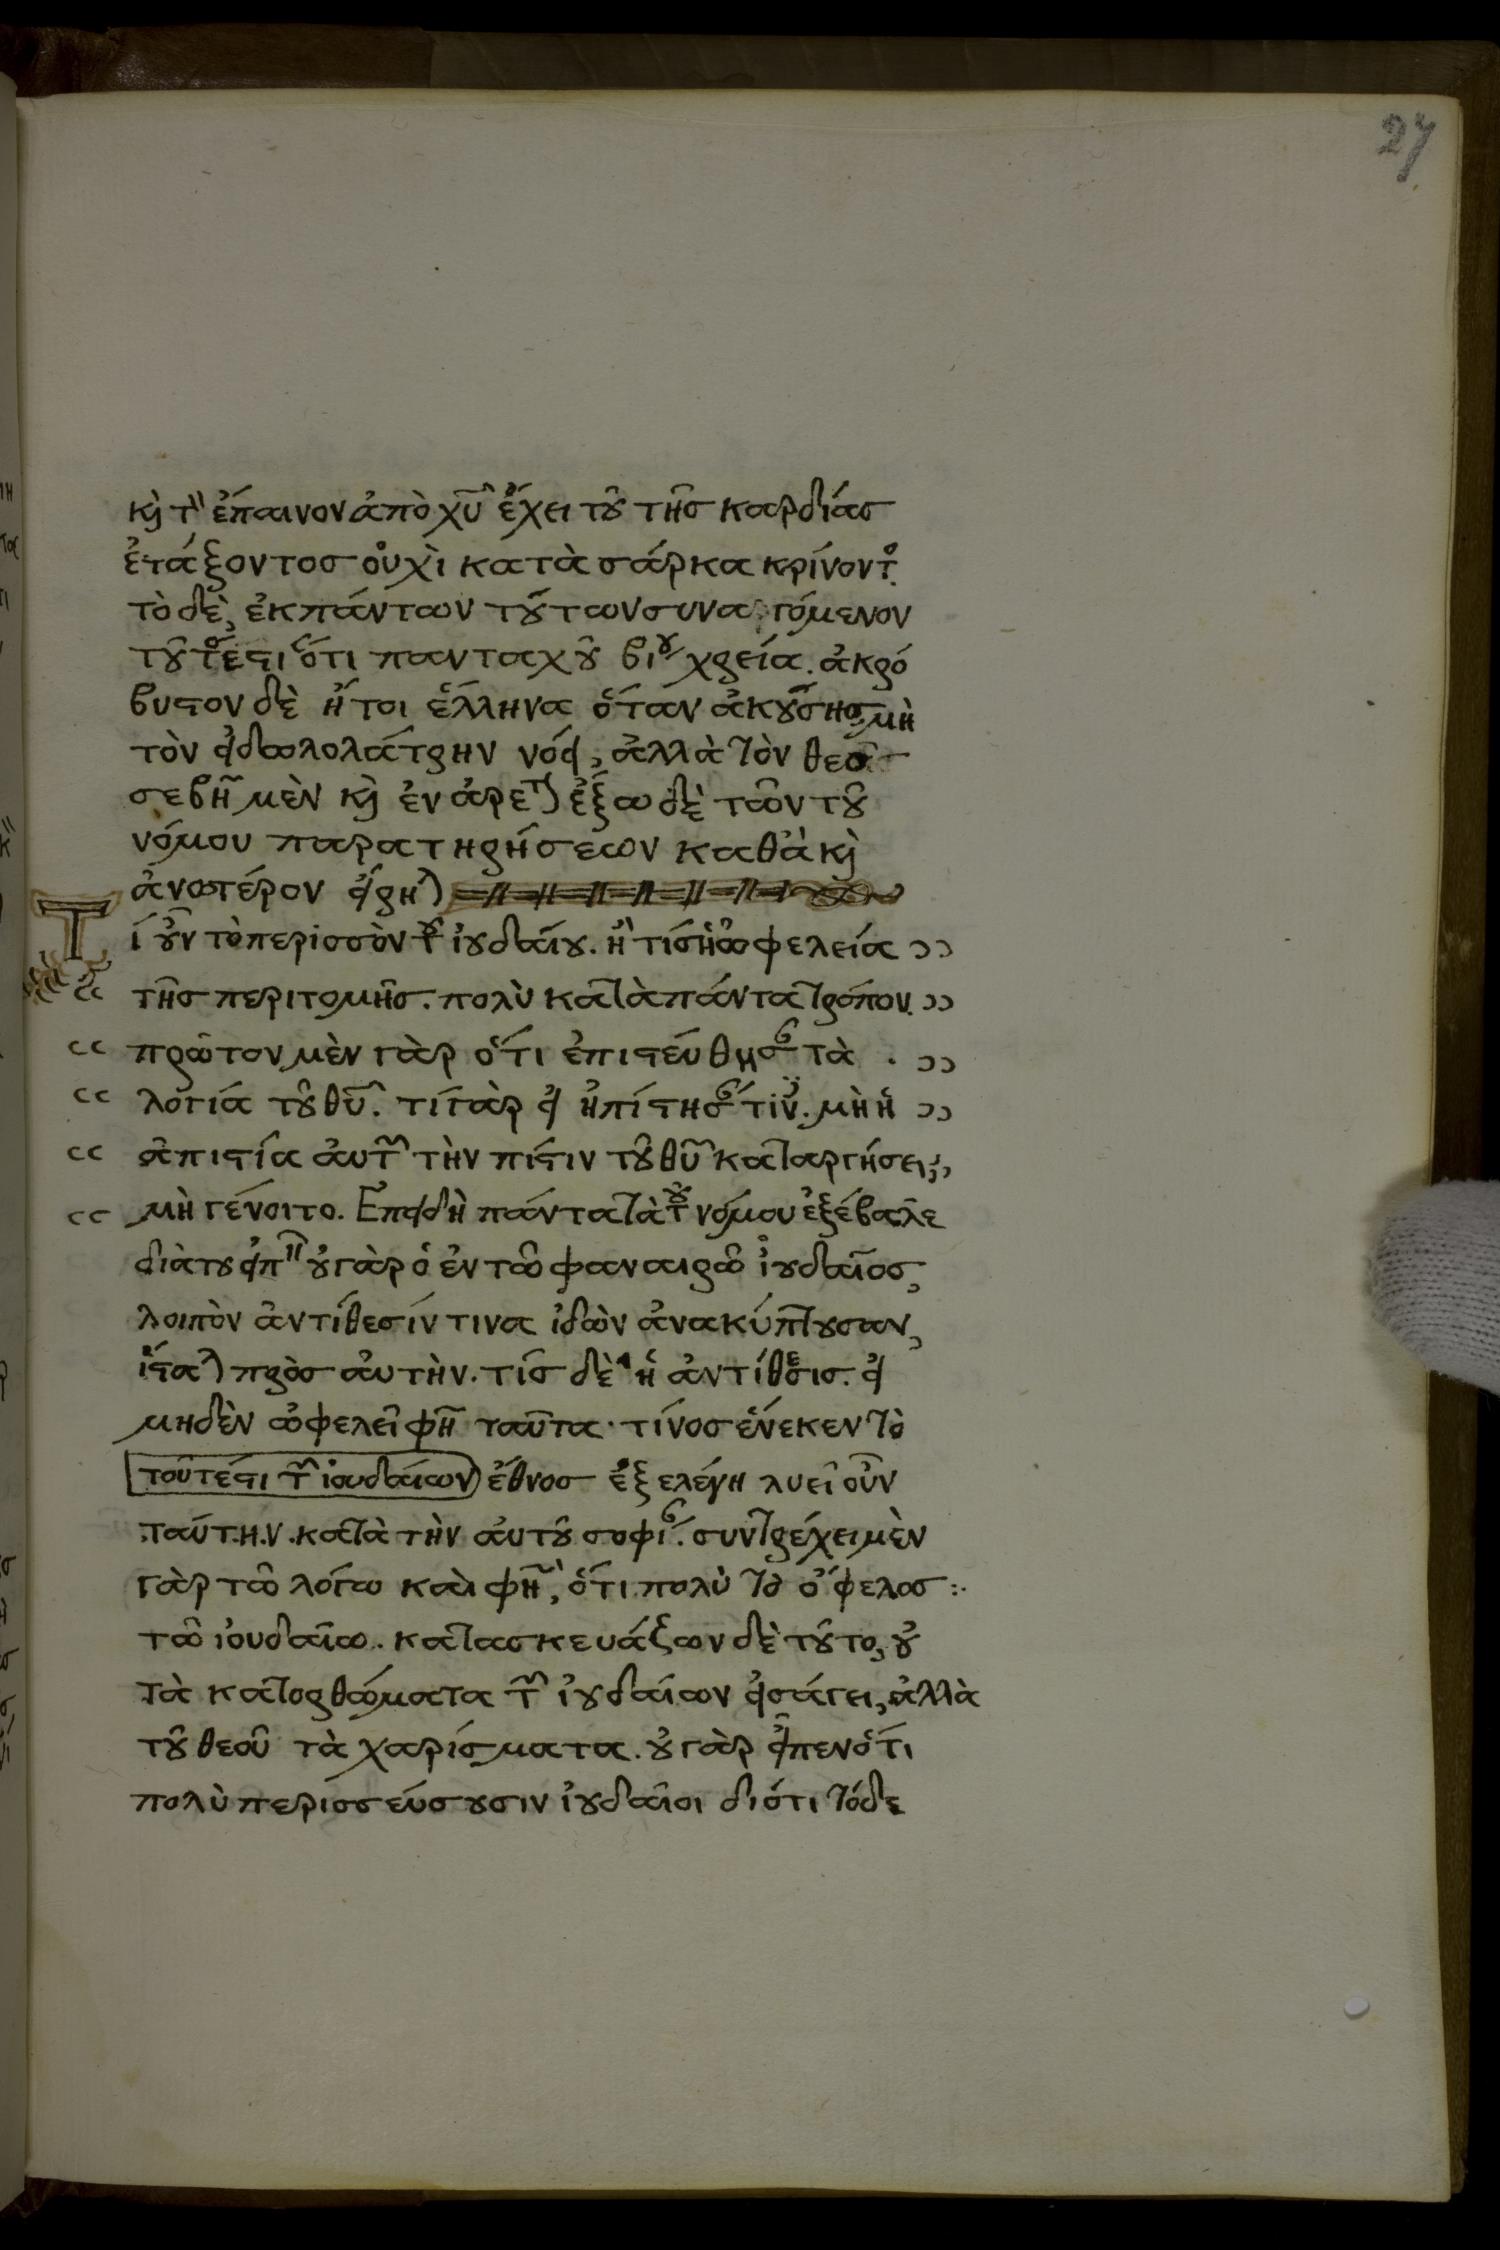 27
κὶ τ̀ ἔπαινον ἀπὸ χῦ ἔχει τοῦ τῆς καρδίας
ἐτάξοντος οὐχὶ κατὰ σάρκα κρίνοντο
τὸ δὲ, ἐκ πάντων τούτων συναγόμενον
τοῦτό ἐστι ὅτι πανταχοῦ βίου χρεία. ἀκρό
βυστον δὲ ἤτοι ἕλληνα ὅταν ἀκούσῃς μὴ
τὸν εἰδωλολάτρην νόει, ἀλλὰ τὸν θεο
σεβῆ μὲν κὶ ἐνάρετ) ἔξω δὲ τῶν τοῦ
νόμου παρατηρήσεων καθὰ κὶ
ἀνωτέρον εἴρη)
Τί οὖν τὸ περισσὸν τοῦ ἰουδαίου. ἢ τίς ἡ ὠφελεία
τῆς περιτομῆς. πολὺ κατὰ πάντα τρόπον.
πρῶτον μὲν γὰρ ὅτι ἐπιστεύθησ τὰ
λογία τοῦ θῦ. τί γὰρ εἰ ἠπίστησ τιν. μὴ ἡ
ἀπιστία αὐτ τὴν πίστιν τοῦ θῦ καταργήσει;
μὴ γένοιτο. Ἐπειδὴ πάντα τὰ τοῦ νόμου ἐξέβαλε
διὰ του εἰπ οὐ γὰρ ὁ ἐν τῶ φαναιρῶ ἰουδαῖος,
λοιπὸν ἀντίθεσίν τινα ἰδὼν ἀνακύπτουσαν,
ἵστα) πρὸς αὐτὴν. τίς δὲ ἡ ἀντίθεσις. εἰ
μηδὲν ὠφελεῖ φῆ ταῦτα. τίνος ἕνεκεν τὸ
τοῦτέστι τ ἰουδαίων) ἔθνος ἐξελέγη λυεῖ οὖν
ταύτην. κατὰ τὴν αὐτοῦ σοφί. συντρέχει μὲν
γὰρ τῶ λόγω καὶ φῆ, ὅτι πολὺ τὸ ὄφελος :.
τῶ ἰουδαίω. κατασκευάζων δὲ τοῦτο, οὐ
τὰ κατορθώματα τ ἰουδαίων εἰσάγει, ἀλλὰ
τοῦ θεοῦ τὰ χαρίσματα. οὐ γὰρ εἶπεν ὅτι
πολὺ περισσεύσουσιν ἰουδαῖοι διότι τόδε